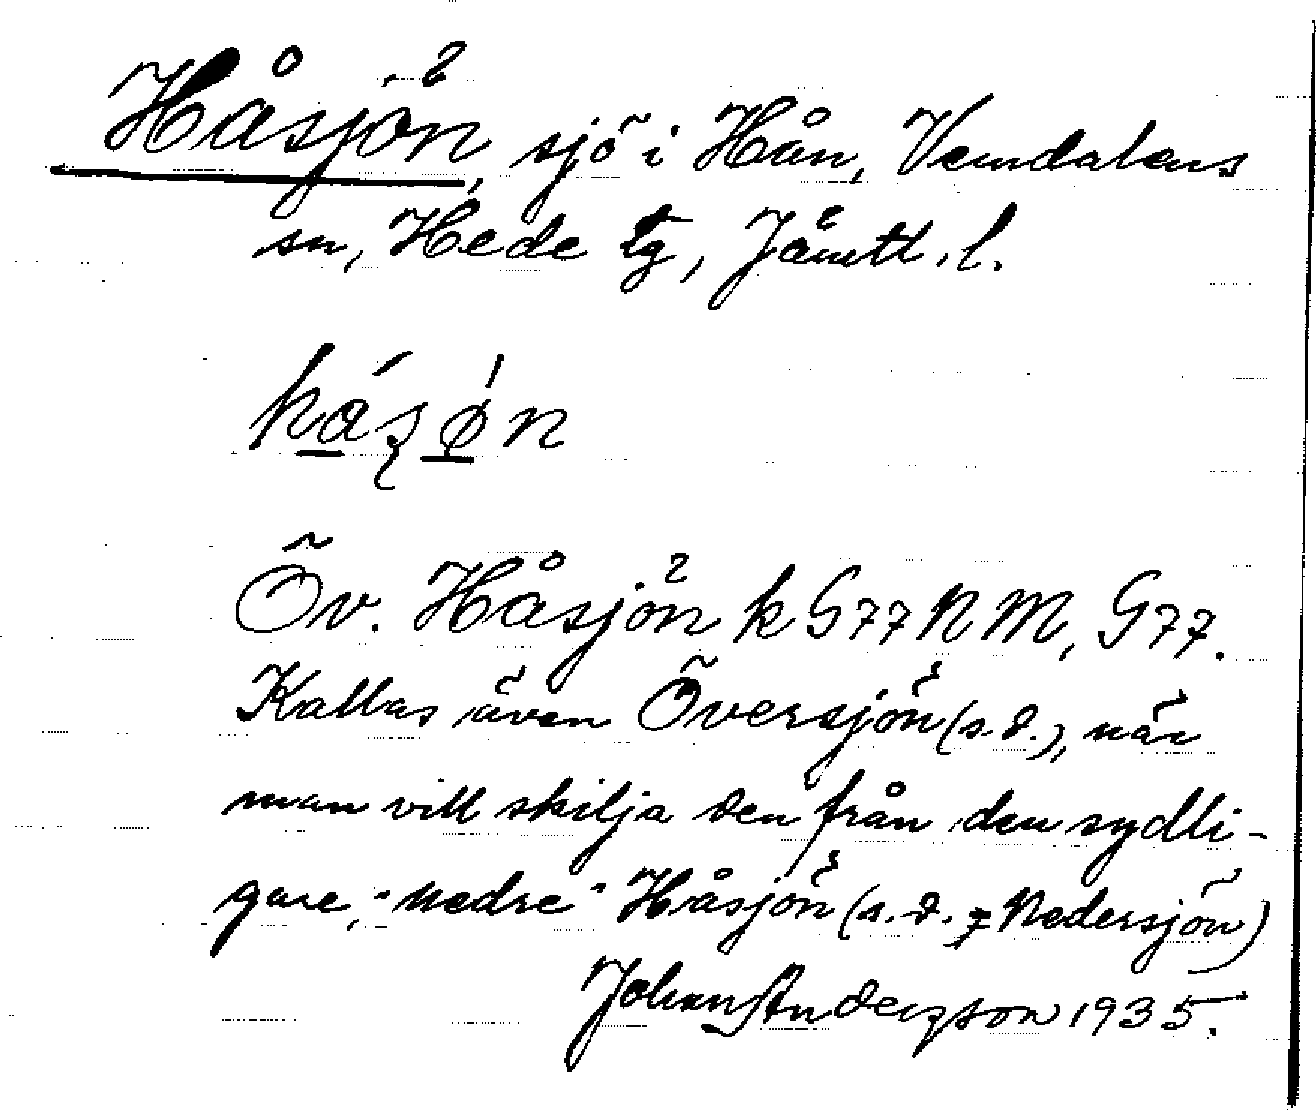 Håsjön, sjö i Hån, Vemdalens
sn, Hede tg, Jämtl. l.
hás̩ǿn
Öv. Håsjön k G77 N M, G77.
Kallas även Översjön (s.d.), när
man vill skilja den från den sydli-
gare, "nedre" Håsjön (s.d. Nedersjön)
Johan Anderson 1935.